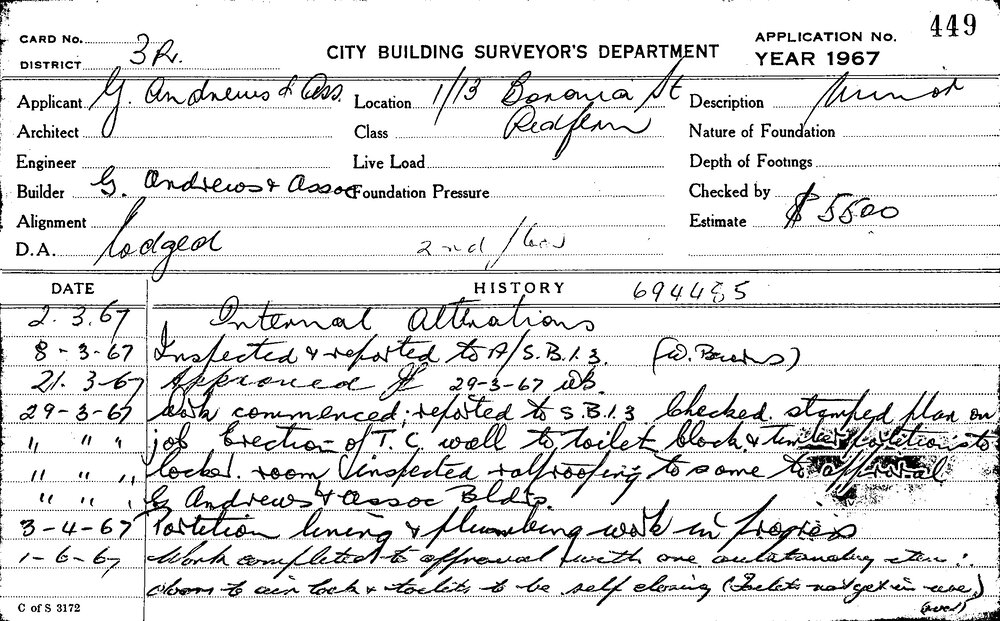 449
CARD No. CITY BUILDING SURVEYOR'S DEPARTMENT APPLICATION No.
DISTRICT 3R. YEAR 1967
Applicant G. Andrews & Ass. Location 1/13 Boronia St Description Minor
Architect Class Redfern Nature of Foundation
Engineer Live Load Depth of Footings
Builder G. Andrews & Assoc Foundation Pressure Checked by
Alignment Estimate $5500
D.A. lodged 2nd/
DATE HISTORY 694485
2.3.67 Internal Alterations
8-3-67 Inspected & reported to A/S.B.I.3.
21.3-67 Approved 29-3-67
29-3-67 Work commenced; reported to S.B.I.3 Checked stamped plan on
" " " job Erection of T.C. wall to toilet block & timber partitions to
" " " locker room inspected ratproofing to same to approval
" " " G Andrews & Assoc Bldrs.
3-4-67 Partition lining & plumbing work in progress
1-6-67 Work completed to approval with one outstanding item:
doors to air lock & toilets to be self closing (Toilets not yet in use)
(over)
C of S 3172